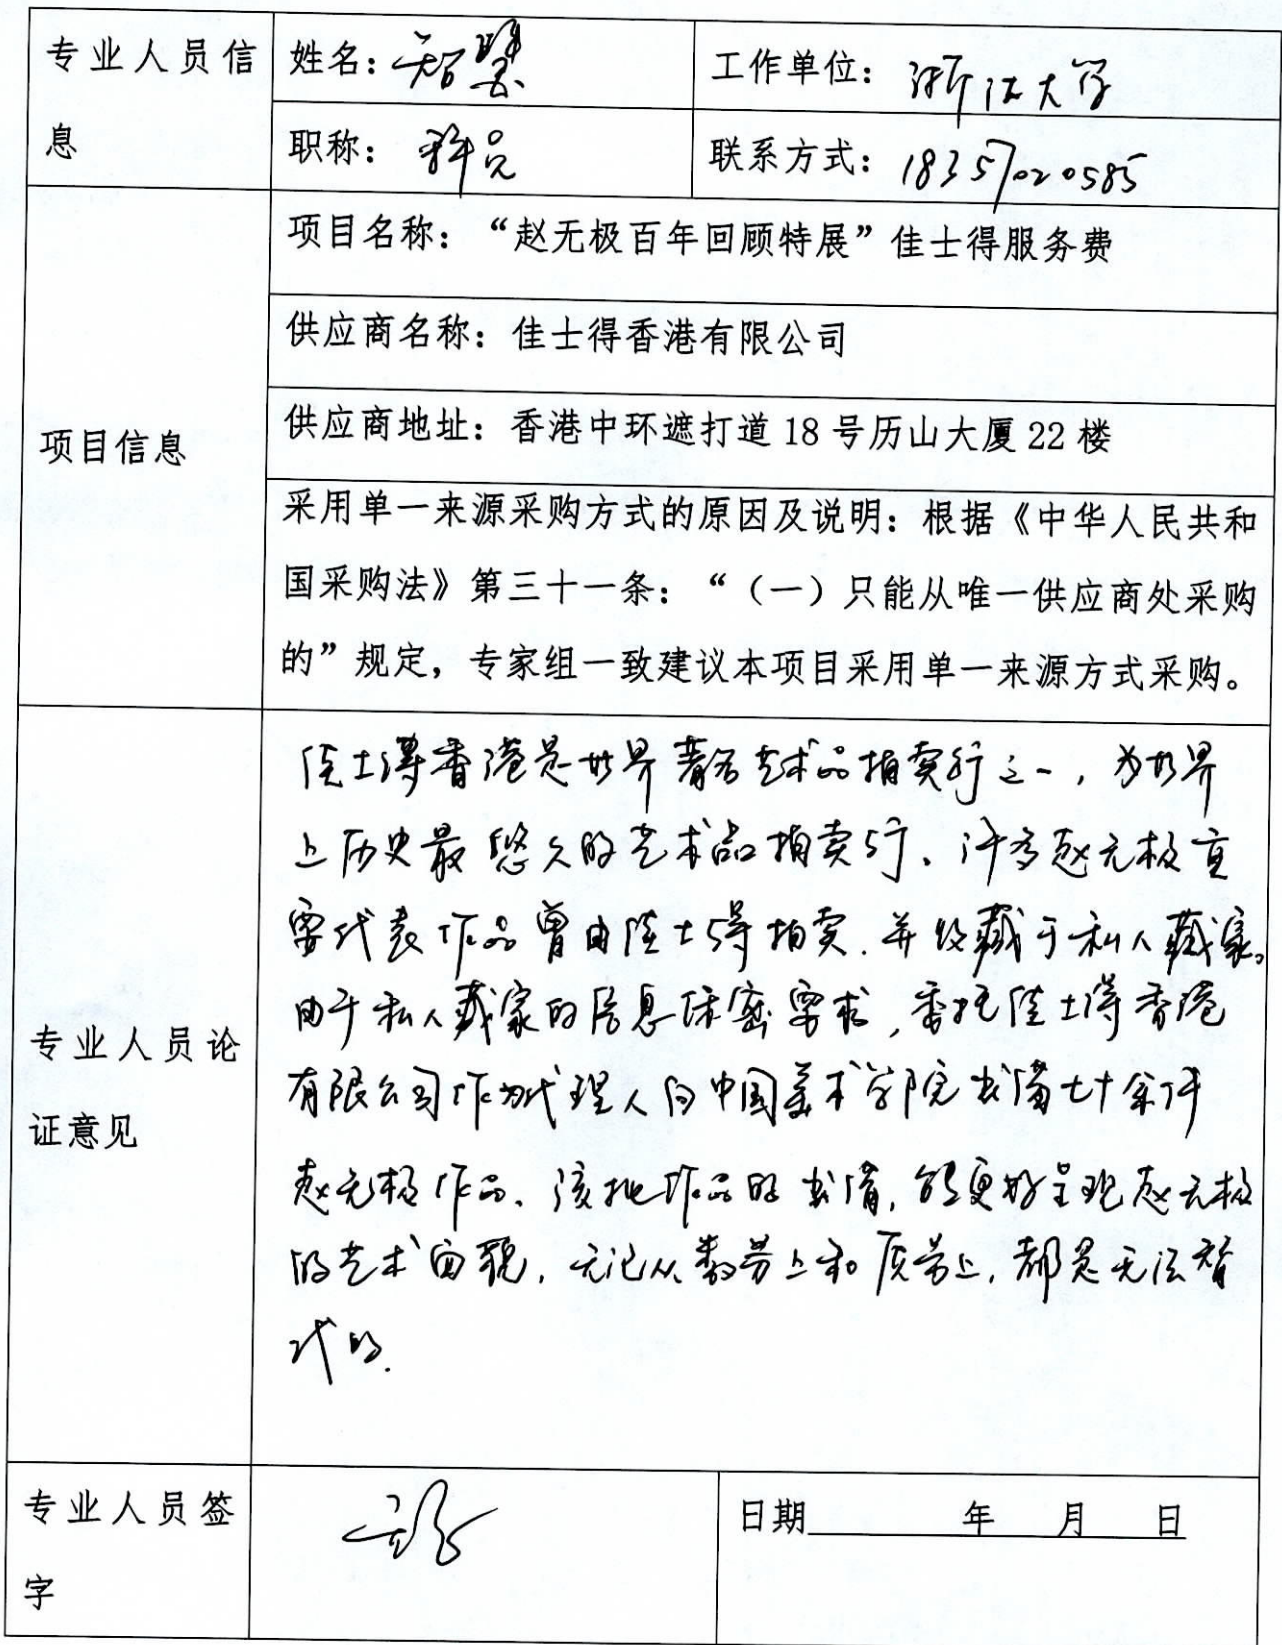 专业人员信息
姓名：
工作单位：浙江大学
职称：科员
联系方式：18357020585
项目信息
项目名称：“赵无极百年回顾特展”佳士得服务费
供应商名称：佳士得香港有限公司
供应商地址：香港中环遮打道 18 号历山大厦 22 楼
采用单一来源采购方式的原因及说明：根据《中华人民共和
国采购法》第三十一条：“（一）只能从唯一供应商处采购
的”规定，专家组一致建议本项目采用单一来源方式采购。
专业人员论证意见
佳士得香港是世界著名艺术品拍卖行之一，为世界
上历史最悠久的艺术品拍卖行、许多赵无极重
要代表作品曾由佳士得拍卖.并收藏于私人藏家。
由于私人藏家的信息保密要求，委托佳士得香港
有限公司作为代理人向中国美术学院出借七十余件
赵无极作品、该批作品的出借，能更好呈现赵无极
的艺术面貌，无论从数量上和质量上，都是无法替
代的.
专业人员签字
日期 年 月 日